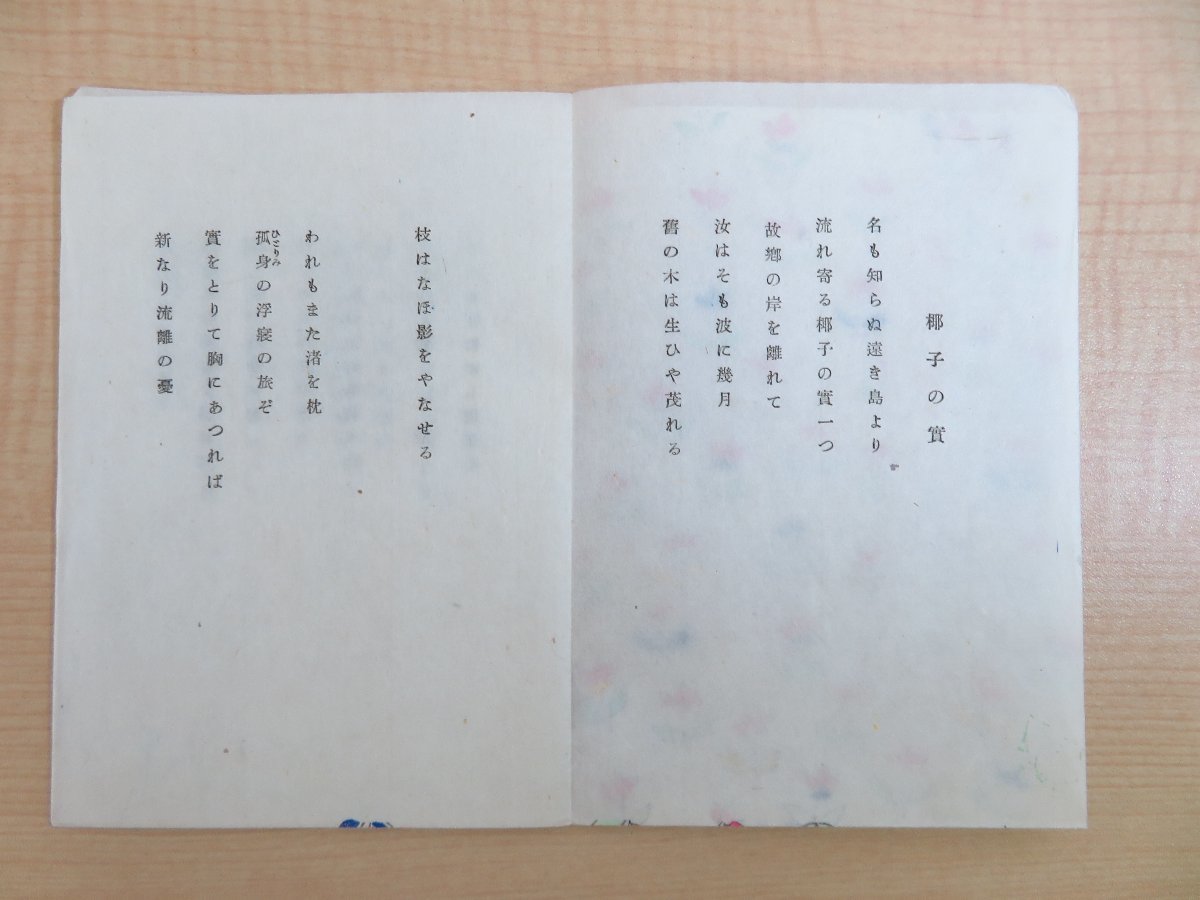 椰子の實
名も知らぬ遠き島より
流れ寄る椰子の實一つ
故鄕の岸を離れて
汝はそも波に幾月
舊の木は生ひや茂れる
枝はなほ影をやなせる
われもまた渚を枕
孤身の浮寢の旅ぞ
ひとりみ
實をとりて胸にあつれば
新なり流離の憂